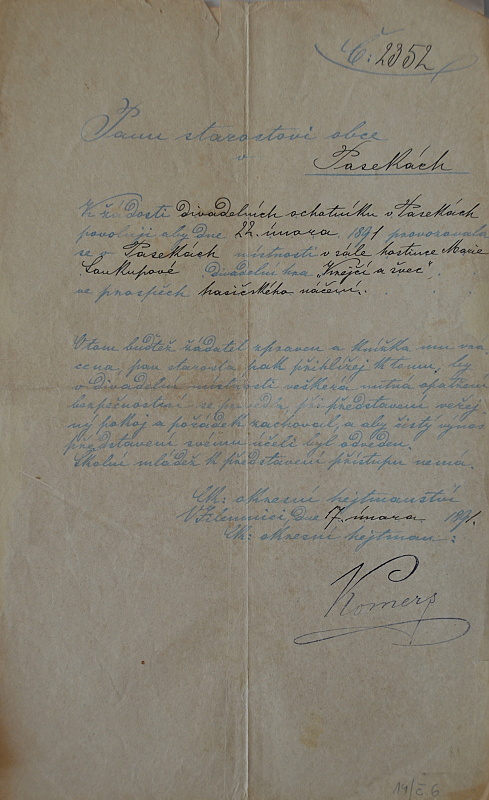 Č: 2352
Panu starostovi obce
v
Pasekách
K žádosti divadelních ochotníku v Pasekách
povoluji aby dne 22. února 1891 provozovala
se v Pasekách místnosti v sále hostince Marie
Soukupové divadelní hra „Krejčí a švec“,
ve prospěch hasičského náčení.
O tom budtěž žadatel zpraven a knížka mu vrá
cena, pan starosta pak přihlížej k tomu, by
v divadelní místnosti veškerá nutná opatření
bezpečnostní se provedla, při představení veřej
ný pokoj a pořádek zachoval, a aby čistý výnos
představení svému účeli byl odveden.
Školní mládež k představení přístupu nemá.
Ck: okresní hejtmanství
V Jilemnici, dne 17. února 1891.
Ck: okresní hejtman:
Komers
14/č.6